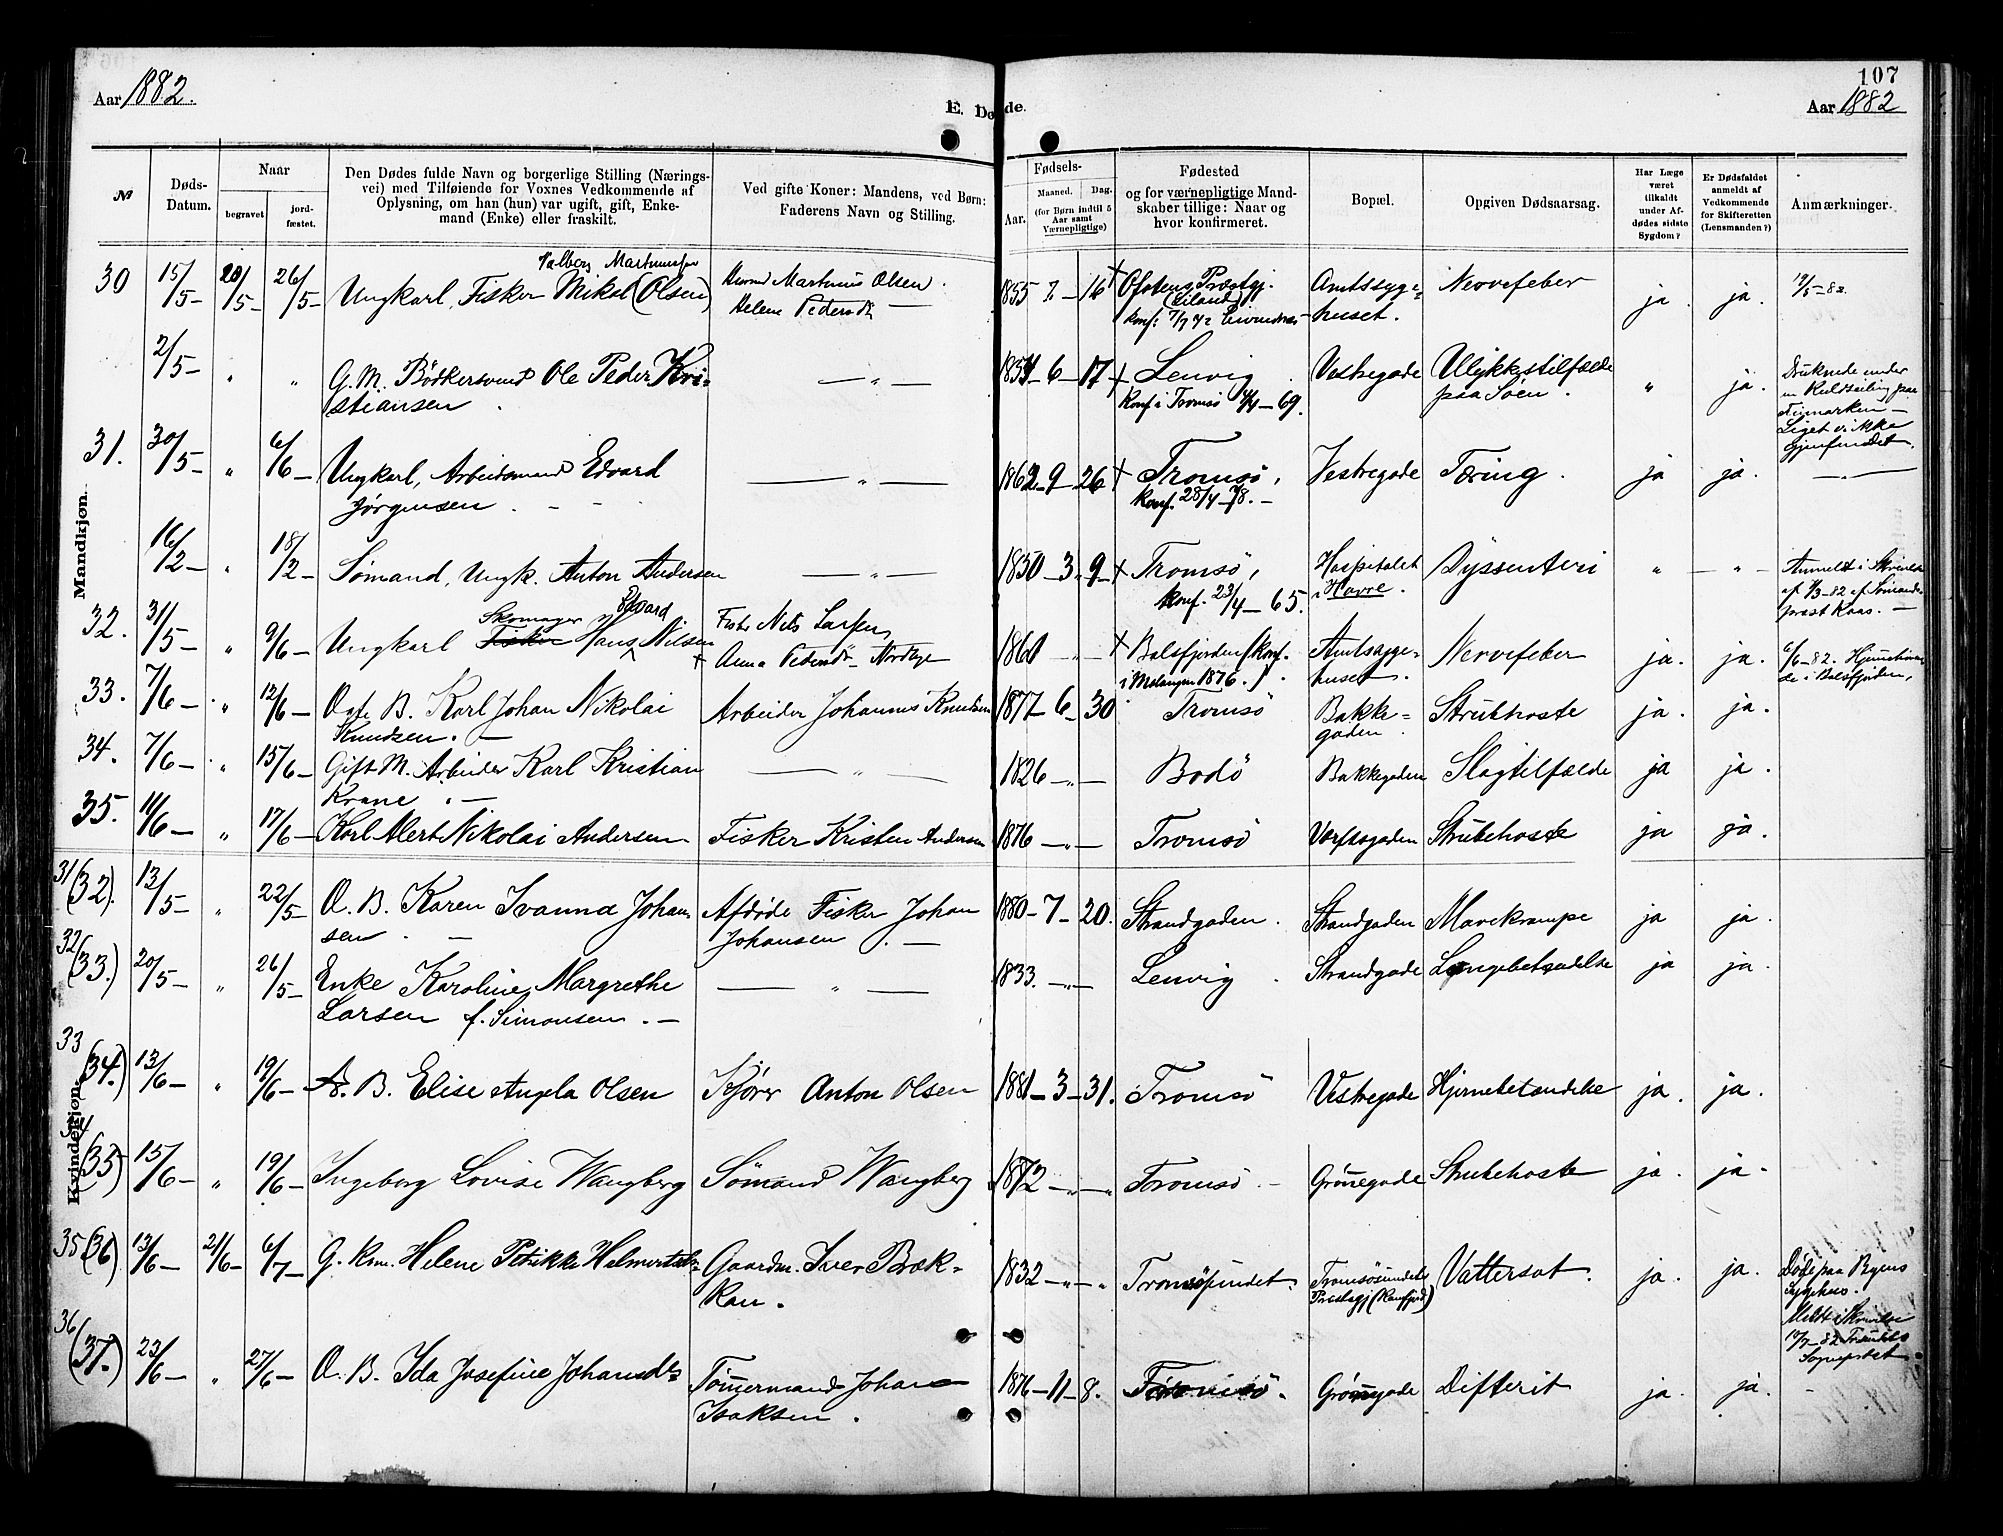 107
Aar 1882.
E. Døde.
Aar 1882
№
Døds-Datum.
Naar
begravet
jord-fæstet.
Den Dødes fulde Navn og borgerlige Stilling (Nærings-
vei) med Tilføiende for Voxnes Vedkommende af
Oplysning, om han (hun) var ugift, gift, Enke-
mand (Enke) eller fraskilt.
Ved gifte Koner: Mandens, ved Børn:
Faderens Navn og Stilling.
Fødsels-
Aar.
Maaned.
Dag.
(for Børn indtil 5
Aar samt
Værnepligtige)
Fødested
og for værnepligtige Mand-
skaber tillige: Naar og
hvor konfirmeret.
Bopæl.
Opgiven Dødsaarsag.
Har Læge
været
tilkaldt
under Af-
dødes sidste
Sygdom?
Er Dødsfaldet
anmeldt af
Vedkommende
for Skifteretten
(Lensmanden?)
Anmærkninger.
Mandkjøn.
30 15/5 20/5 26/5 Ungkarl, Fisker Mikal (Olsen) Martinus Olsen. 1855 7 16 † Ofotens Præstgj. Amtssyge- Nervefeber ja. ja. 19/5-82
Helene Pedersdt. huset.
2/5 " " G. M. Bödkersvend Ole Peder Kri- — " — 1854 - 6 - 17 † Lenvig Vestregade Ulykkestilfælde " ja. Druknede under
stiansen. Konf. i Tromsö - 69. paa Søen. Finmarken -
Liget ei ikke
gjenfundet.
31. 30/5 " 6/6 Ungkarl, Arbeidsmand Edvard — " — 1862 - 9 - 26 † Tromsö, Vestregade Tæring. ja ja. — " —
Jörgensen. Konf. 28/4-78.
16/2 " 18/2 Sømand, Ungk. Anton Andersen — " — 1850 - 3 - 9 † Tromsö, Hospitalet Dyssenteri " — " — Anmeldt i Skrivelse
Konf. 23/4-65. i Havre. af 1/3-82 af Sömands-
præst Kaas.
32. 31/5 " 9/6 Ungkarl Skomager Hans Edvard Nilsen Fisker Nils Larsen, 1860 " † Balsfjorden (konf. Amtssyge- Nervefeber ja. ja. 6/6-82.
Anna Pedersdt. i Malangen 1876.) huset. i Balsfjorden,
33. 7/6 " 12/6 B. Karl Johan Nikolai Arbeider Johannes Knudsen 1877 - 6 - 30 Tromsö Bakke- Strubhoste ja. ja.
Knudsen. gaden
34. 7/6 " 15/6 Gift M. Arbeider Karl Kristian — " — 1826 - " - Bodö Bakkegaden Slagtilfælde ja ja.
Krane.
35. 11/6 " 17/6 Karl Alert Nikolai Andersen Fisker Kristen Andersen 1876 - " - Tromsö Værftsgaden Strubehoste ja ja.
Kvindekjøn.
31 (32). 13/5 " 22/5 Æ. B. Karen Ivanna Johan- Afdöde Fisker Johan 1880 - 7 - 20. Strandgaden. Strandgaden Mavekrampe ja ja.
sen. Johansen.
32 (33.) 20/5 " 26/5 Enke Karoline Margrethe — " — 1833. - " - Lenvig. Strandgade Lungebetændelse ja ja.
Larsen f. Simonsen.
33 (34.) 13/6 " 19/6 Æ. B. Elise Angela Olsen Kjörer Anton Olsen 1881 - 3 - 31. Tromsö Vestregade Hjernebetændelse ja. ja.
34 (35) 15/6 " 19/6 Ingeborg Lovise Wangberg Sömand Wangberg 1872 - " - " Tromsö. Grönnegade Strubehoste ja. ja.
35 (36) 13/6 21/6 6/7 G. Kone Helene Petrikke Helmertsdt. Gaardm. Iver Bræk- 1832 - " - " Tromsösundet. Tromsösundets Vattersot. ja. ja. Døde paa Byens
kan. Præstegj. Sygehus.
Meldt i Skrivelse
Sognepræst.
36 (37.) 23/6 " 27/6 Æ. B. Ida Josefine Johansdt. Tömmermand Johan 1876 - 11 - 8. Tromsö. Grönnegade Difterit ja. ja.
Isaksen.